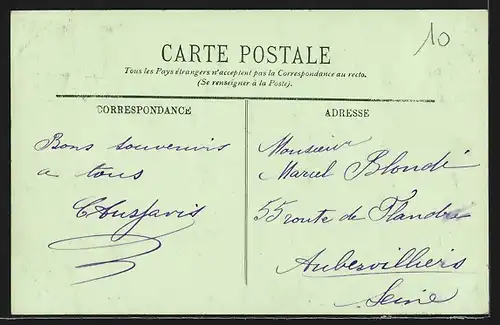 10
CARTE POSTALE
Tous les Pays étrangers n'acceptent pas la Correspondance au recto.
(Se renseigner à la Poste).
CORRESPONDANCE
Bons souvenirs
a tous
ADRESSE
Monsieur
Marcel Blondé
55 route de Flandre
Aubervilliers
Seine